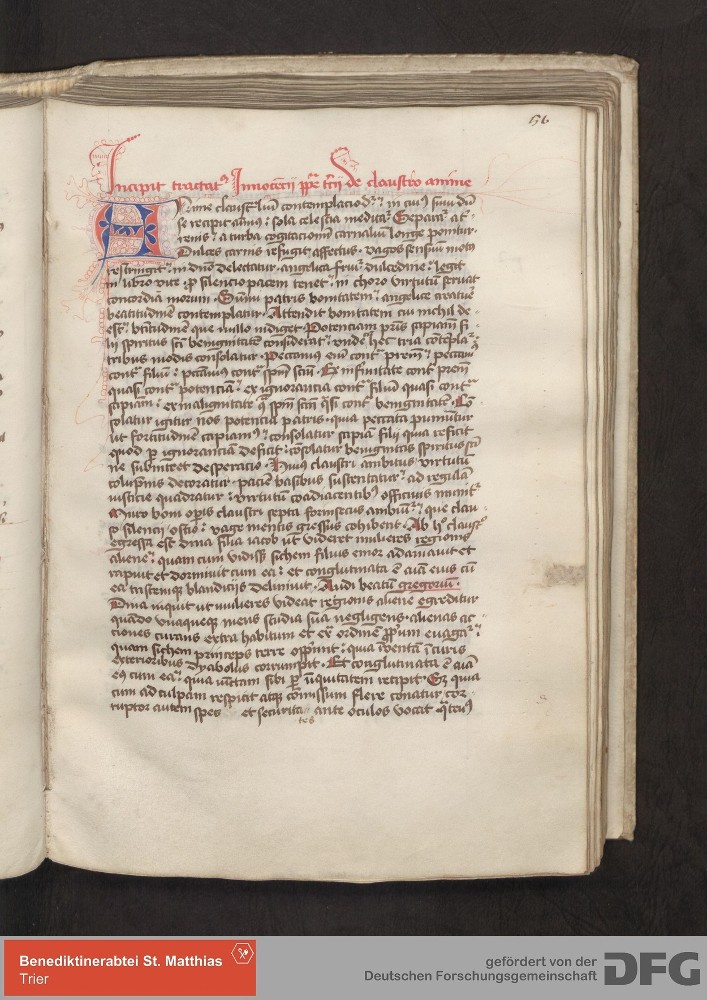 156
Incipit tractat9 Innocecij ppe trcij de claustro anime
Anime claustrū contemplacio dr in cui9 sinu dū
se recipit aīmus sola celestia meditat Separat a t
renis a turba cogitacionū carnaliū longe ponitur
Dulces carnis refugit affectus vagos sensuū mot9
restringit in dnō delectatur angelica fruit dulcedine legit
in libro vite p silencio pacem tenet in choro virtutū servat
concordiā morum Sūmi patris bonitatem angelice creature
beatitudinem contemplatur Attendit bonitatem cui nichil de
est btitudinem que nullo indiget Potenciam pris sapiam fi
lii spiritus sci benignitatem considerat unde hec tria contēplat
tribus modis consolatur Peccamus enī contra prem peccam9
contra filium peccamus contra spm scm Ex infirmitate cont prem
quasi cont potenciā ex ignorancia cont filiū quasi cont
sapiam ex malignitate in spm scm qsi cont benignitatē Con
solatur igitur nos potencia patris quia peccata puniuntur
ut fortitudinem capiam9 consolatur sapiam filii quia reficit
quod p ignoranciā deficit cosolatur benignitas spiritus sci
ne subintret desperacio Huius claustri ambitus virtutū
columpnis decoratur paciēe basibus sustentatur ad regulā
iusticie quadratur virtutum coadiacentib9 officiuis munit
Muro boni opis claustri septa forinsecus ambiūt que clau
so silencii ostio vage mentis gressus cohibent Ab hoc claust
egressa est dina filia iacob ut videret mulieres regionis
aliene quam cum vidiss sichem filius emor adamavit et
rapuit et dormivit cum ea et conglutinata ē aīa eius cū
ea tristemque blandiciis delinivit Audi beatū gregoriū
Dina inquit ut mulieres videat regionis aliene egreditur
quādo unaqueque mens studia sua negligens alienas ac
tiones curans extra habitum et ex ordinē ppriū evagat
quam sichem princeps terre opprimit quia inventā i curis
exterioribus dyabolus corrumpit Et conglutinata ē aīa
eī9 cum ea quia unitam sibi per iniquitatem recipit Et quia
cum ad culpam respicit atque cōmissum flere conatur cor
ruptor autem spes et securita ante oculos vocat
tes
Benediktinerabtei St. Matthias
Trier
gefördert von der
Deutschen Forschungsgemeinschaft
DFG